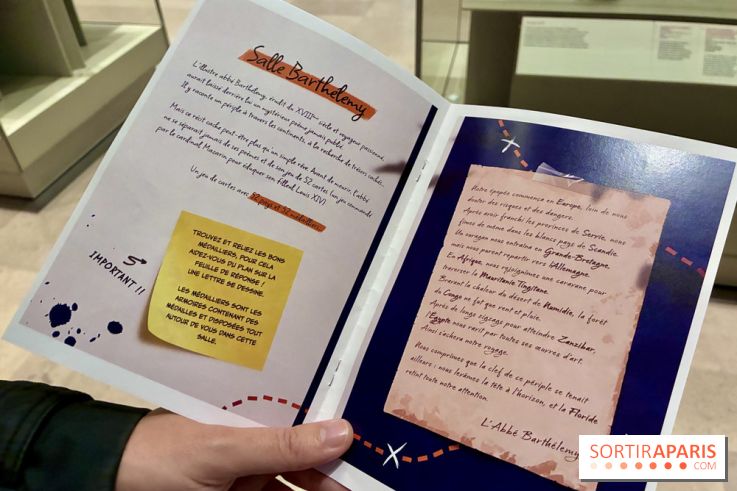 Salle Barthélemy
L'illustre abbé Barthélemy, érudit du XVIIIème siècle et voyageur passionné,
aurait laissé derrière lui un mystérieux poème jamais publié.
Il y raconte un périple à travers les continents, à la recherche de trésors cachés.
Mais ce récit cache peut-être plus qu'un simple rêve. Avant de mourir, l'abbé
ne se séparait jamais de ses poèmes et de son jeu de 52 cartes (un jeu commandé
par le cardinal Mazarin pour éduquer son filleul Louis XIV).
Un jeu de cartes avec 52 pays et 52 médailliers.
IMPORTANT !!
TROUVEZ ET RELIEZ LES BONS
MÉDAILLIERS, POUR CELA
AIDEZ-VOUS DU PLAN SUR LA
FEUILLE DE RÉPONSE !
UNE LETTRE SE DESSINE.
LES MÉDAILLIERS SONT LES
ARMOIRES CONTENANT DES
MÉDAILLES ET DISPOSÉES TOUT
AUTOUR DE VOUS DANS CETTE
SALLE.
Notre épopée commence en Europe, loin de nous
douter des risques et des dangers.
Après avoir franchi les provinces de Servie, nous
fûmes de même dans les blancs pays de Scandie.
Un varègue nous entraîna en Grande-Bretagne,
mais nous voient repartir vers l'Allemagne.
En Afrique, nous rejoignîmes une caravane pour
traverser la Mauritanie Tingitane.
Bravant la chaleur du désert de Numidie, la forêt
du Congo ne fut que vent et pluie.
Après de longs zigzags pour atteindre Zanzibar,
l'Égypte nous ravit par toutes ses œuvres d'art.
Ainsi s'achève notre voyage.
Nous comprîmes que la clef de ce périple se tenait
ailleurs ; nous levâmes la tête à l'horizon, et la Floride
retint toute notre attention.
L'Abbé Barthélemy
SORTIRAPARIS
.COM